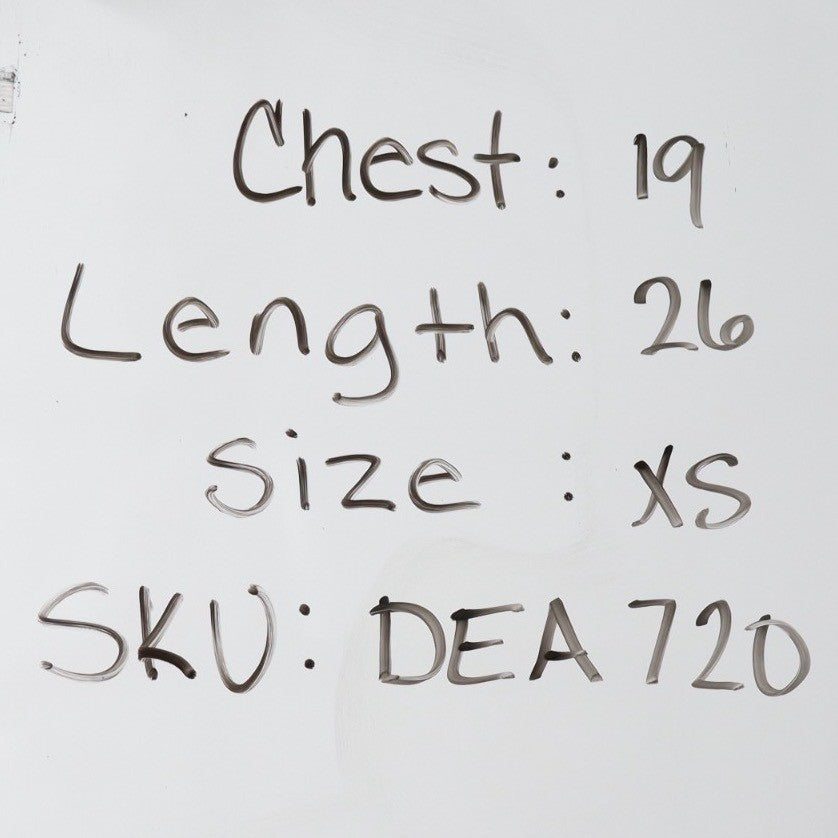 Chest: 19
Length: 26
Size : XS
SKU: DEA 720